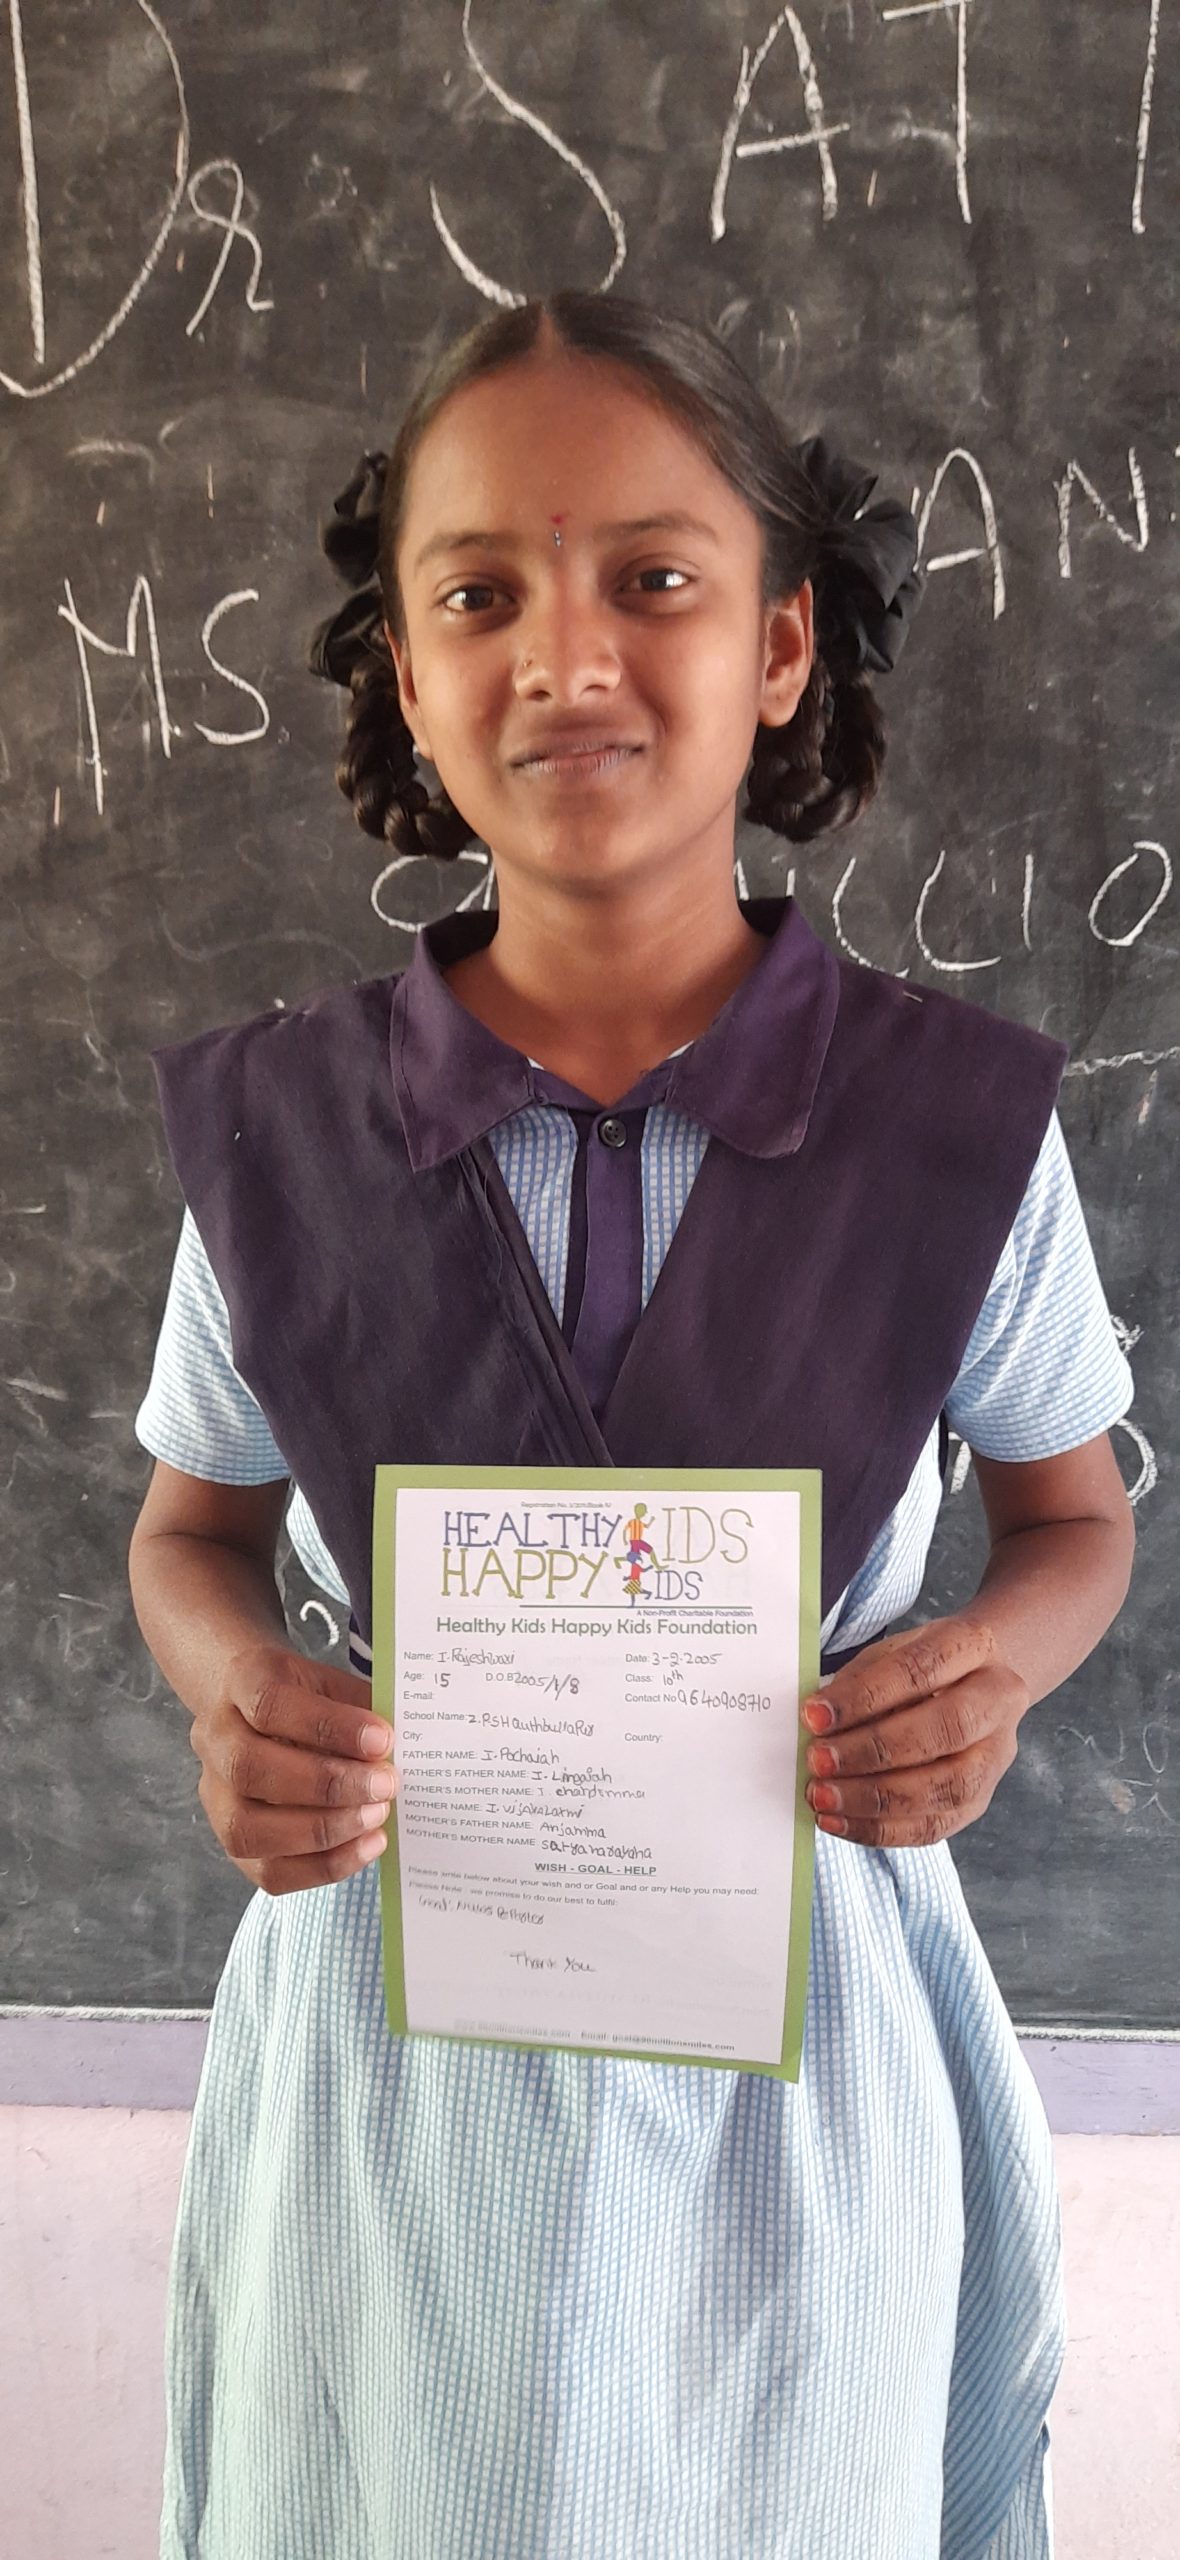 Dr SATI
AN
MS
CCIO
Registration No.
HEALTHY KIDS
HAPPY KIDS
A Non-Profit Charitable Foundation
Healthy Kids Happy Kids Foundation
Name: I. Rajeshwari Date: 3-2-2005
Age: 15 D.O.B 2005/1/8 Class: 10th
E-mail: Contact No 9640908710
School Name: Z.P.S.H Quthbullapur
City: Country:
FATHER NAME: I. Pochaiah
FATHER'S FATHER NAME: I. Lingaiah
FATHER'S MOTHER NAME: I.
MOTHER NAME: I. Vijayalaxmi
MOTHER'S FATHER NAME: Anjamma
MOTHER'S MOTHER NAME Satyanarayana
WISH - GOAL - HELP
Please write below about your wish and or Goal and or any Help you may need:
Please Note: we promise to do our best to fulfil:
Thank You
Email: goal@90millionsmiles.com